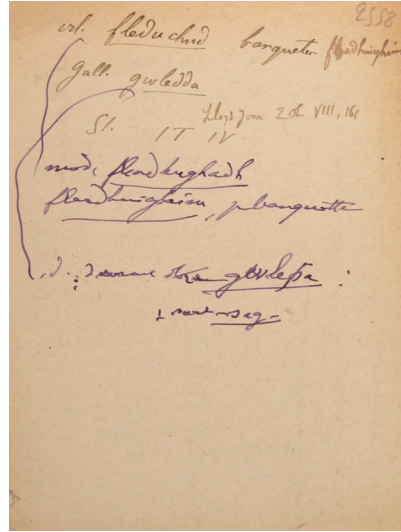 2558
irl. fleduchud banqueter fleadhuighim
gall. gwledda
Lloyd Jon Z. ch. VIII, 161
Sl. IT IV
mod. fleadhughadh
fleadhuighim, je banquette
gwlessa :
-sag-